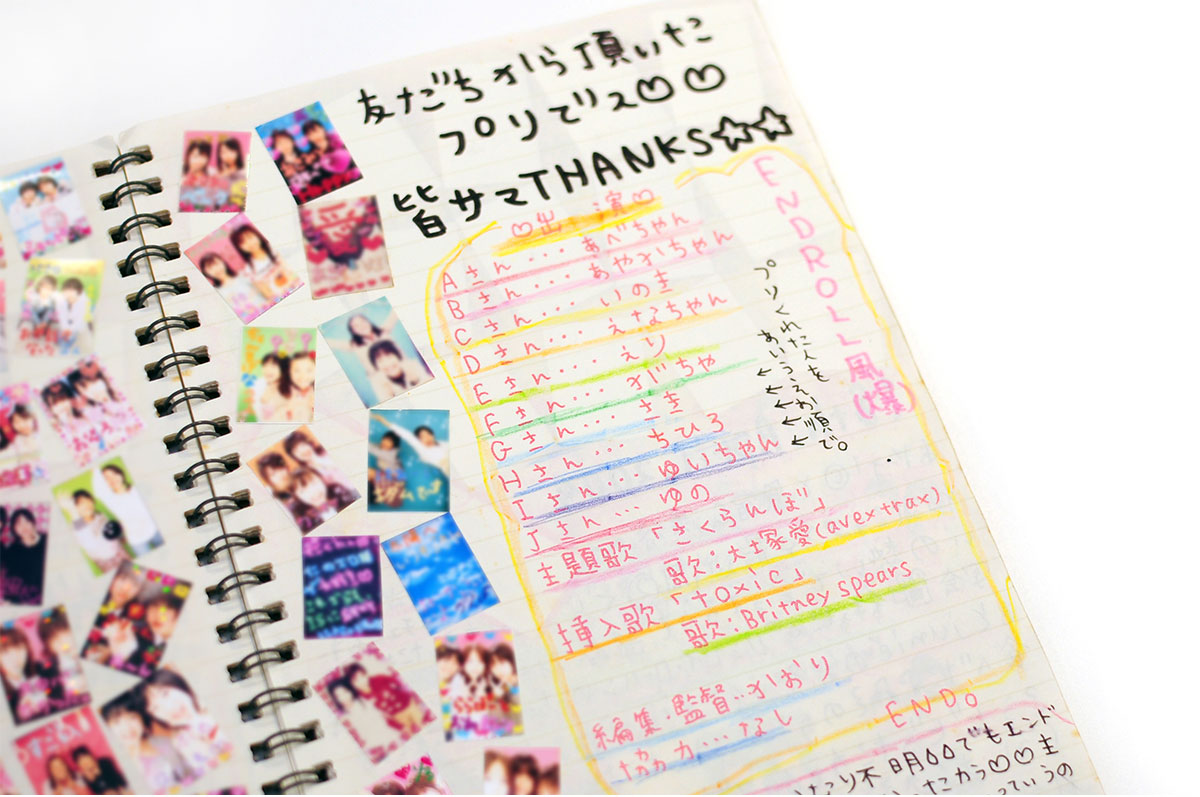 友だちから頂いた
プリでス♡♡
皆サマTHANKS☆☆
ENDROLL風(爆)
♡出演♡
Aさん…あべちゃん
Bさん…あやかちゃん
Cさん…いのま
Dさん…えなちゃん
Eさん…えり
Fさん…がちゃ
Gさん…さき
Hさん…ちひろ
Iさん…ゆいちゃん
Jさん…ゆの
プリくれた人を
あいうえお順で。
主題歌「さくらんぼ」
歌:大塚愛(avex trax)
挿入歌「toxic」
歌:Britney spears
編集.監督..かおり
協力…なし
END。
たり不明○○でもエンド
たから♡♡主
っていうの